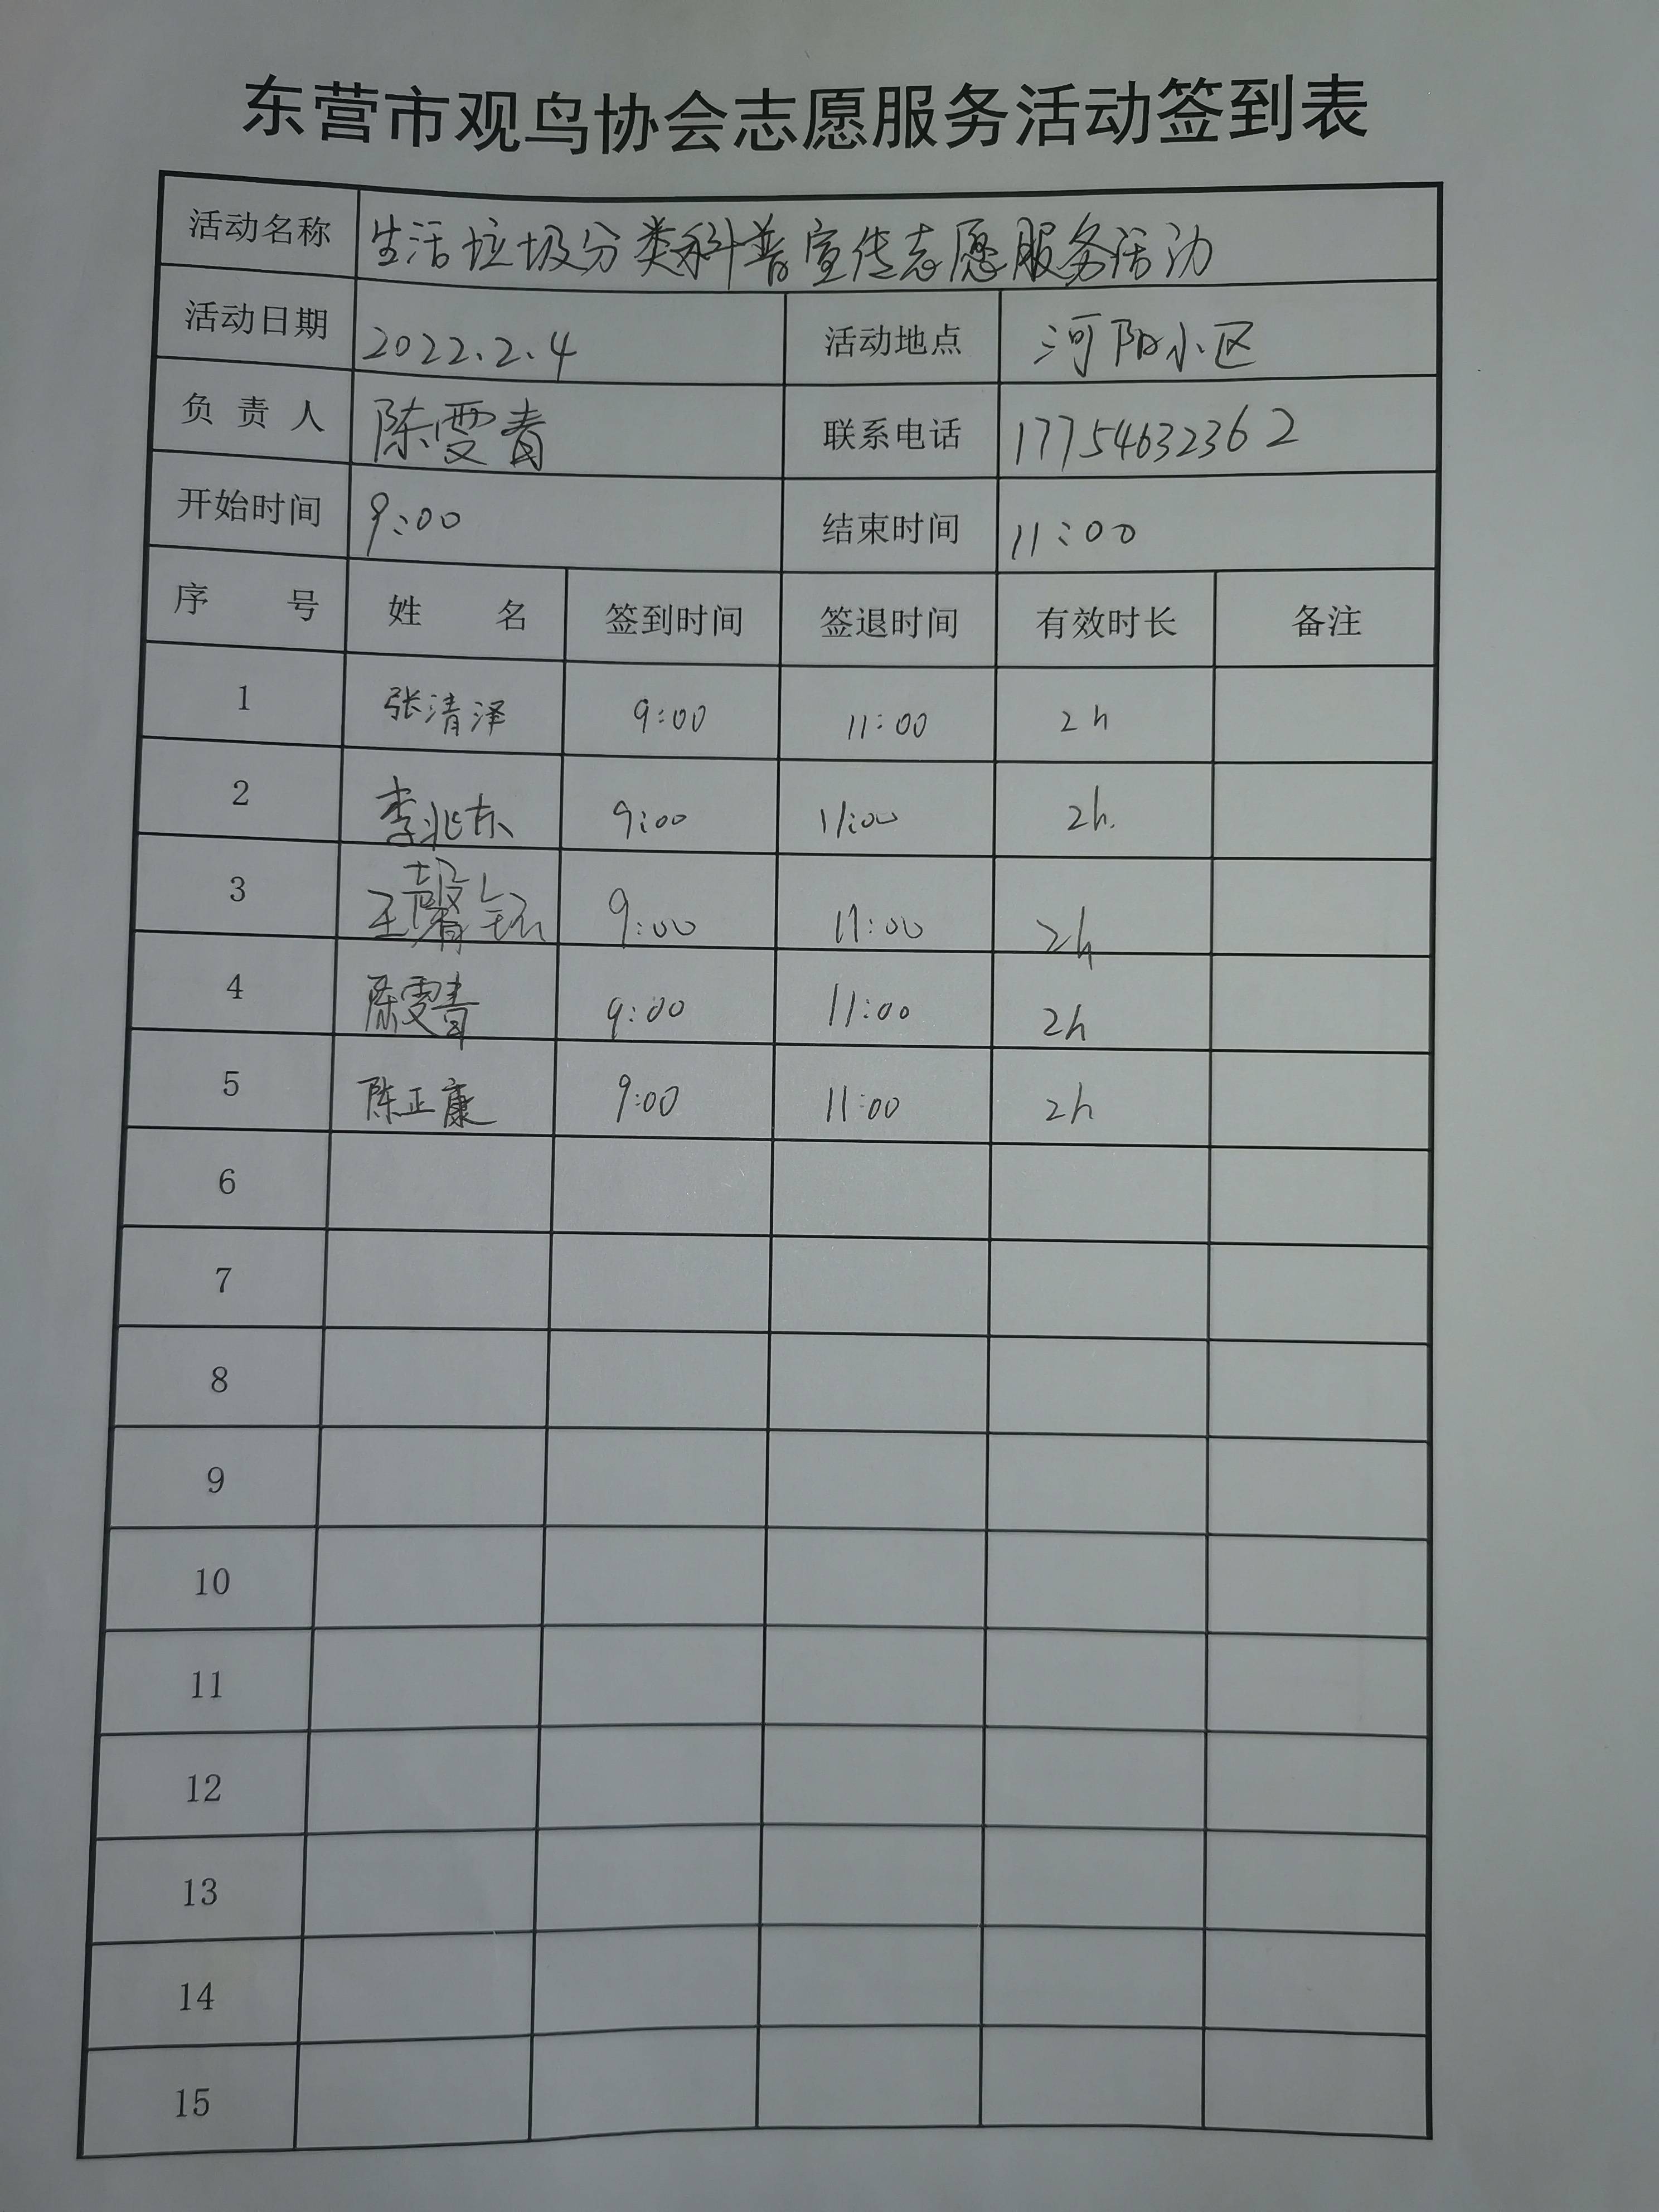 东营市观鸟协会志愿服务活动签到表
活动名称 生活垃圾分类科普宣传志愿服务活动
活动日期 2022.2.4 活动地点 河阳小区
负责人 陈雯青 联系电话 17754632362
开始时间 9:00 结束时间 11:00
序号 姓名 签到时间 签退时间 有效时长 备注
1 张清泽 9:00 11:00 2h
2 李兆东 9:00 11:00 2h.
3 王馨钰 9:00 11:00 2h
4 陈雯青 9:00 11:00 2h
5 陈正康 9:00 11:00 2h
6
7
8
9
10
11
12
13
14
15